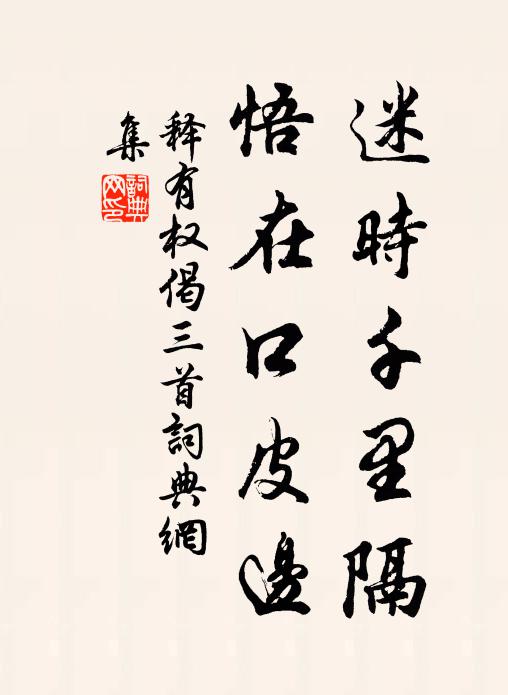 迷時千里隔
悟在口皮邊
释有权偈三首詞典網
集
詞典網印